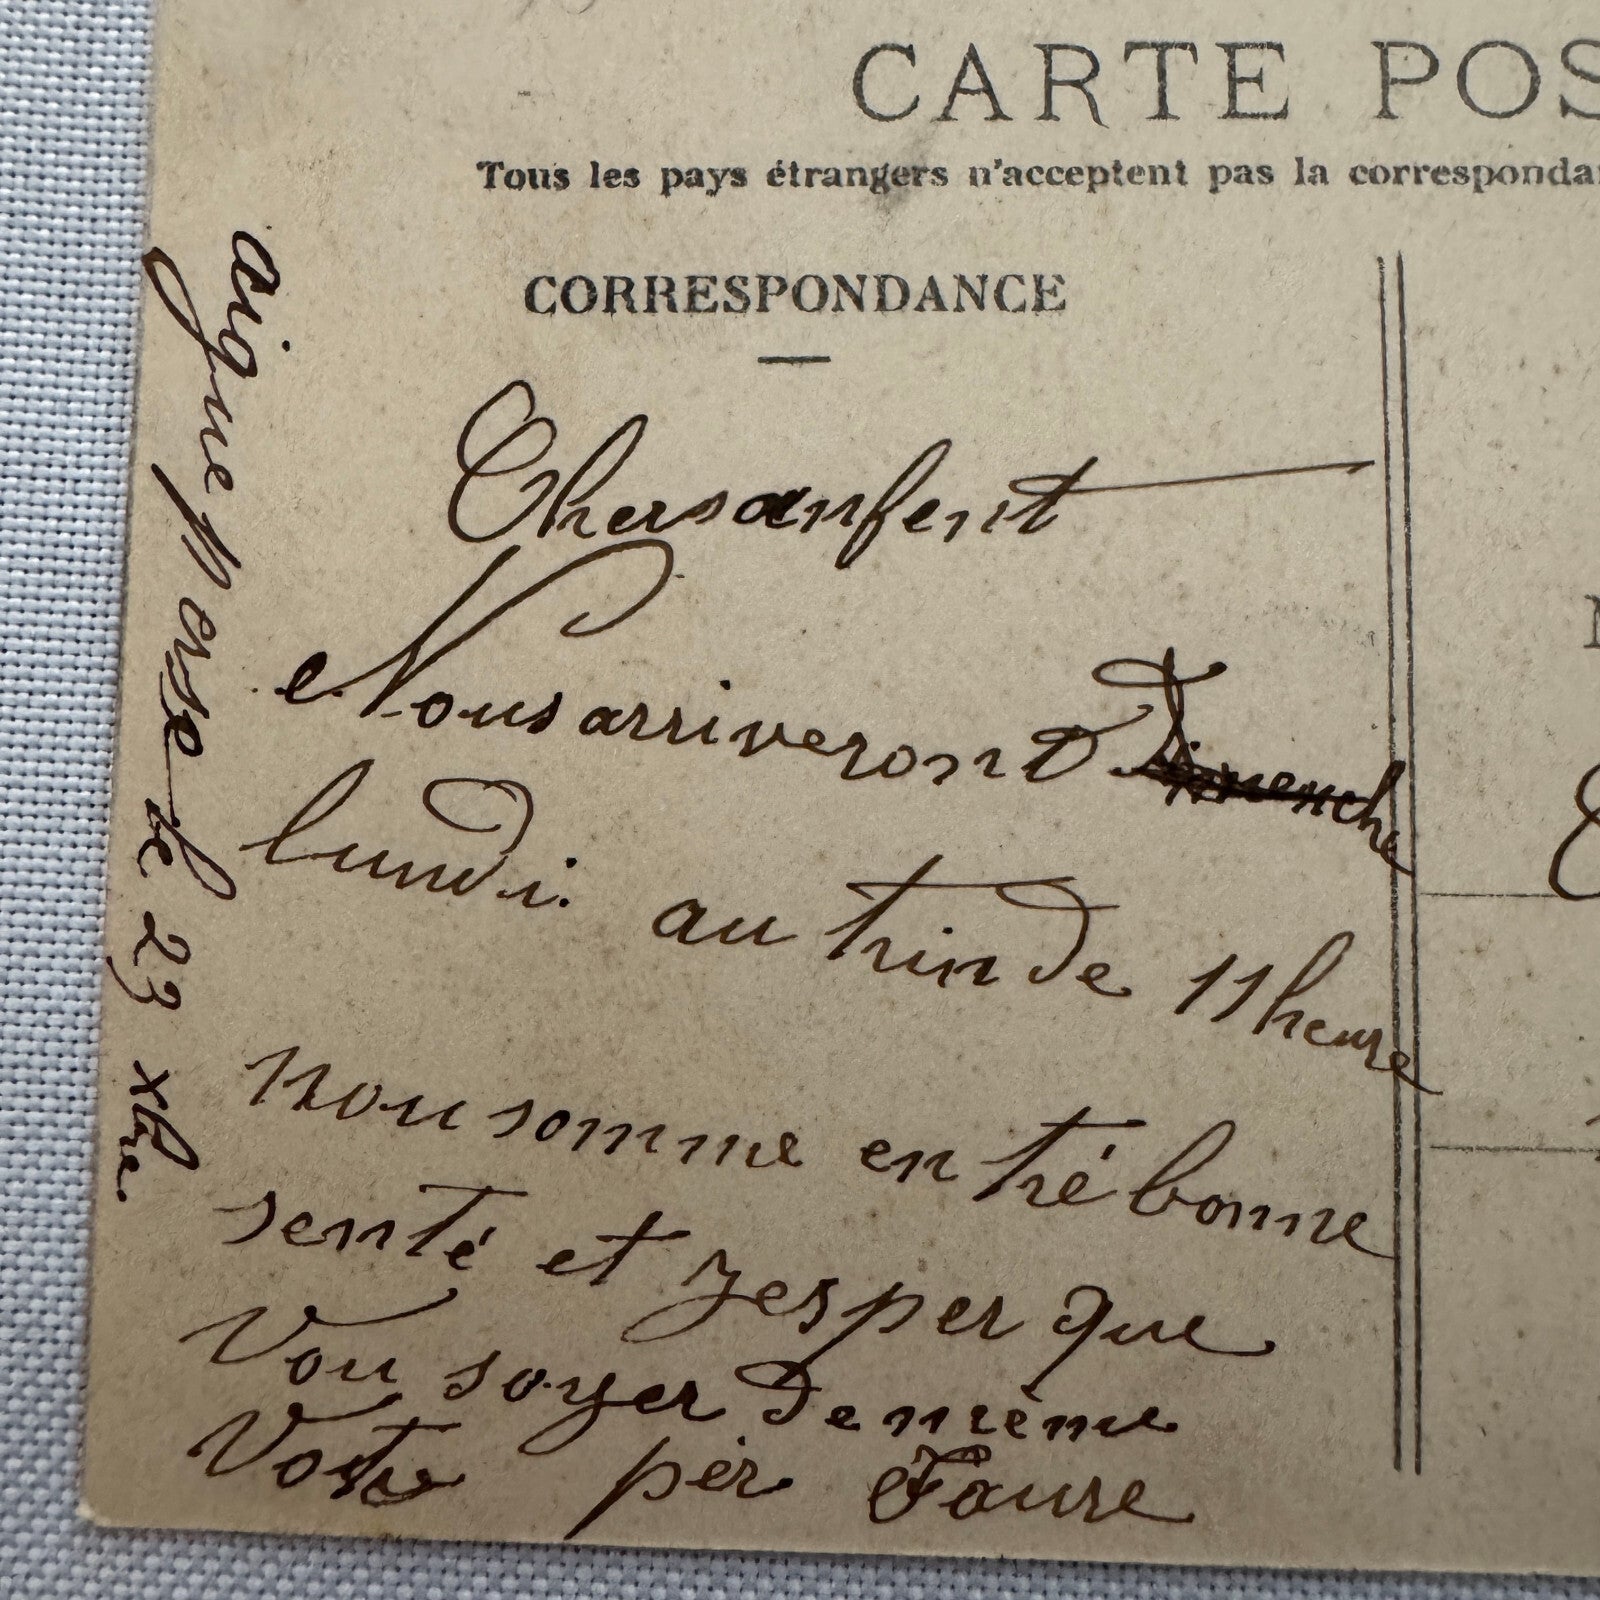 CARTE POS
Tous les pays étrangers n'acceptent pas la corresponda
CORRESPONDANCE
aigueperse le 23 xbre
Chers anfent
Nous arriveront Dimenche
lundi. au trin de 11 heure
nou somme en tré bonne
senté et jesper que
Vou soyer de mème
Votre pèr Faure